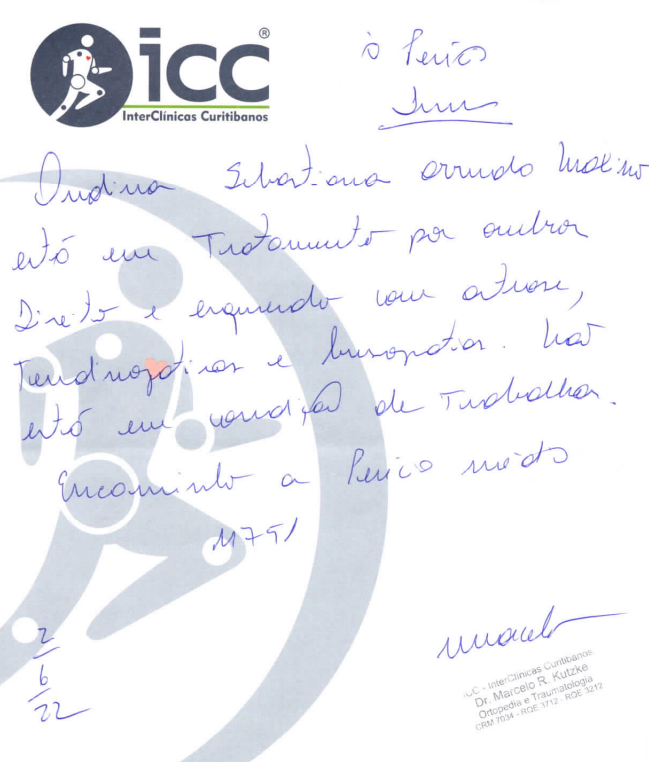 icc®
InterClínicas Curitibanos
à Perícia
Inss
Ondina Sebastiana Arruda
está em Tratamento por ombros
Direito e esquerdo com artrose,
Tendinopatias e bursopatias. Não
está em condição de Trabalhar.
Encaminho a Perícia médica
M751
2
6
22
ICC - InterClínicas Curitibanos
Dr. Marcelo R. Kutzke
Ortopedia e Traumatologia
CRM 7034 - RQE 3712 - RQE 3212